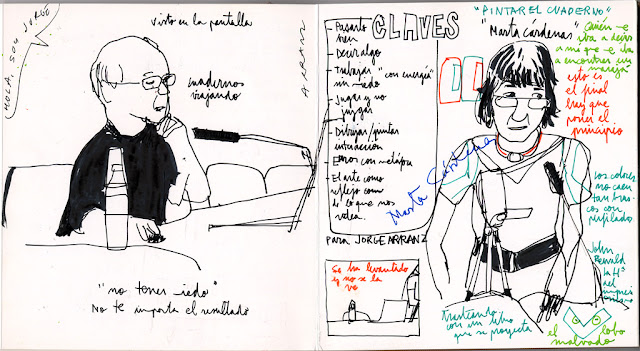 HOLA, SOY JORGE
ARRANZ
visto en la pantalla
cuadernos
viajando
"no tener miedo"
No te importa el resultado
CLAVES
- Pasarlo
bien
- Decir algo
- Trabajar "con energía"
sin miedo
- Jugar y no
juzgar
- Dibujar/pintar
interacción
- El arte como
reflejo
de lo que nos
rodea.
para JORGE ARRANZ
Se ha levantado
y no se la
ve
"PINTAR EL CUADERNO"
"Marta Cárdenas"
Quién me
iba a decir
a mí que me iba
a encontrar un
esto es
el final
hay que
poner el
principio
Marta Cárdenas
los colores
no caen
tan bra-
cos con
perfilado
John
la Hª
del
trasteando
con un libro
que se proyecta
el lobo
malvado